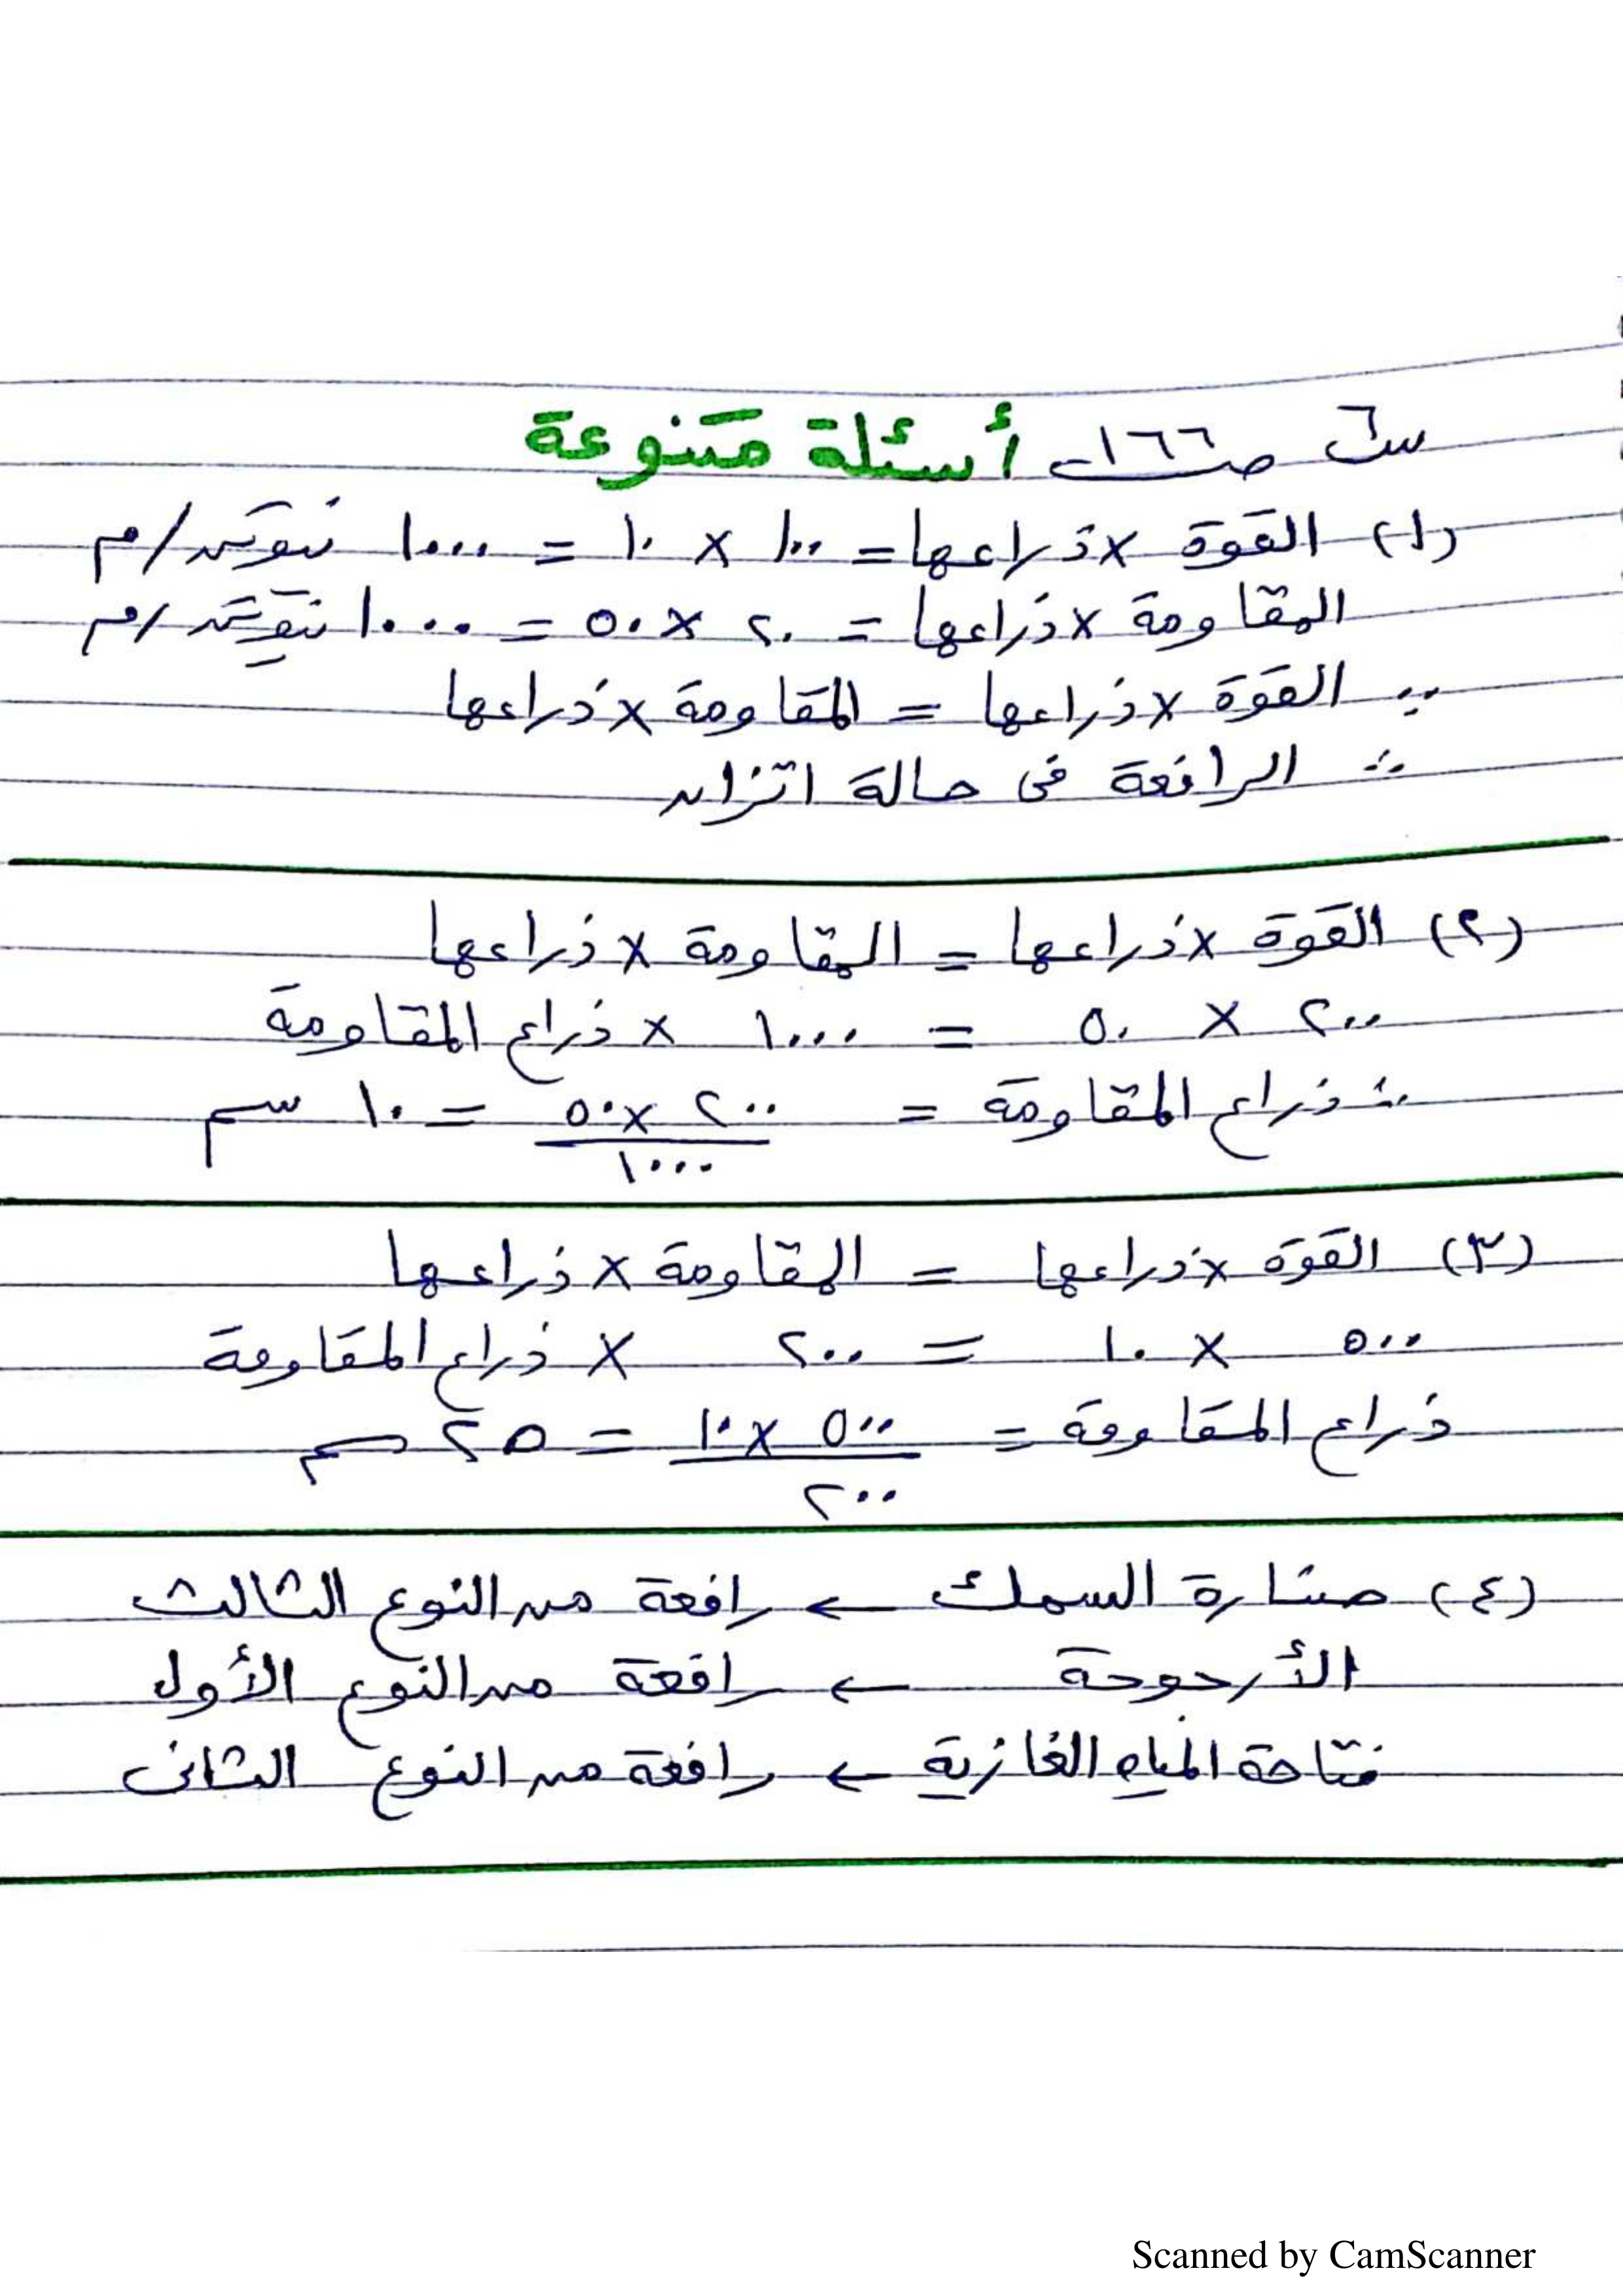 س٦ صـ ١٦٦ـ أسئلة متنوعة
(١) القوة × ذراعها = ١٠٠ × ١٠ = ١٠٠٠ نيوتن/م
المقاومة × ذراعها = ٢٠ × ٥٠ = ١٠٠٠ نيوتن/م
∵ القوة × ذراعها = المقاومة × ذراعها
∴ الرافعة فى حالة اتزان
(٢) القوة × ذراعها = المقاومة × ذراعها
٢٠٠ × ٥٠ = ١٠٠٠ × ذراع المقاومة
∴ ذراع المقاومة = ٢٠٠ × ٥٠ = ١٠ سم
١٠٠٠
(٣) القوة × ذراعها = المقاومة × ذراعها
٥٠٠ × ١٠ = ٢٠٠ × ذراع المقاومة
ذراع المقاومة = ٥٠٠ × ١٠ = ٢٥ سم
٢٠٠
(٤) صنارة السمك ← رافعة من النوع الثالث
الأرجوحة ← رافعة من النوع الأول
فتاحة المياه الغازية ← رافعة من النوع الثانى
Scanned by CamScanner